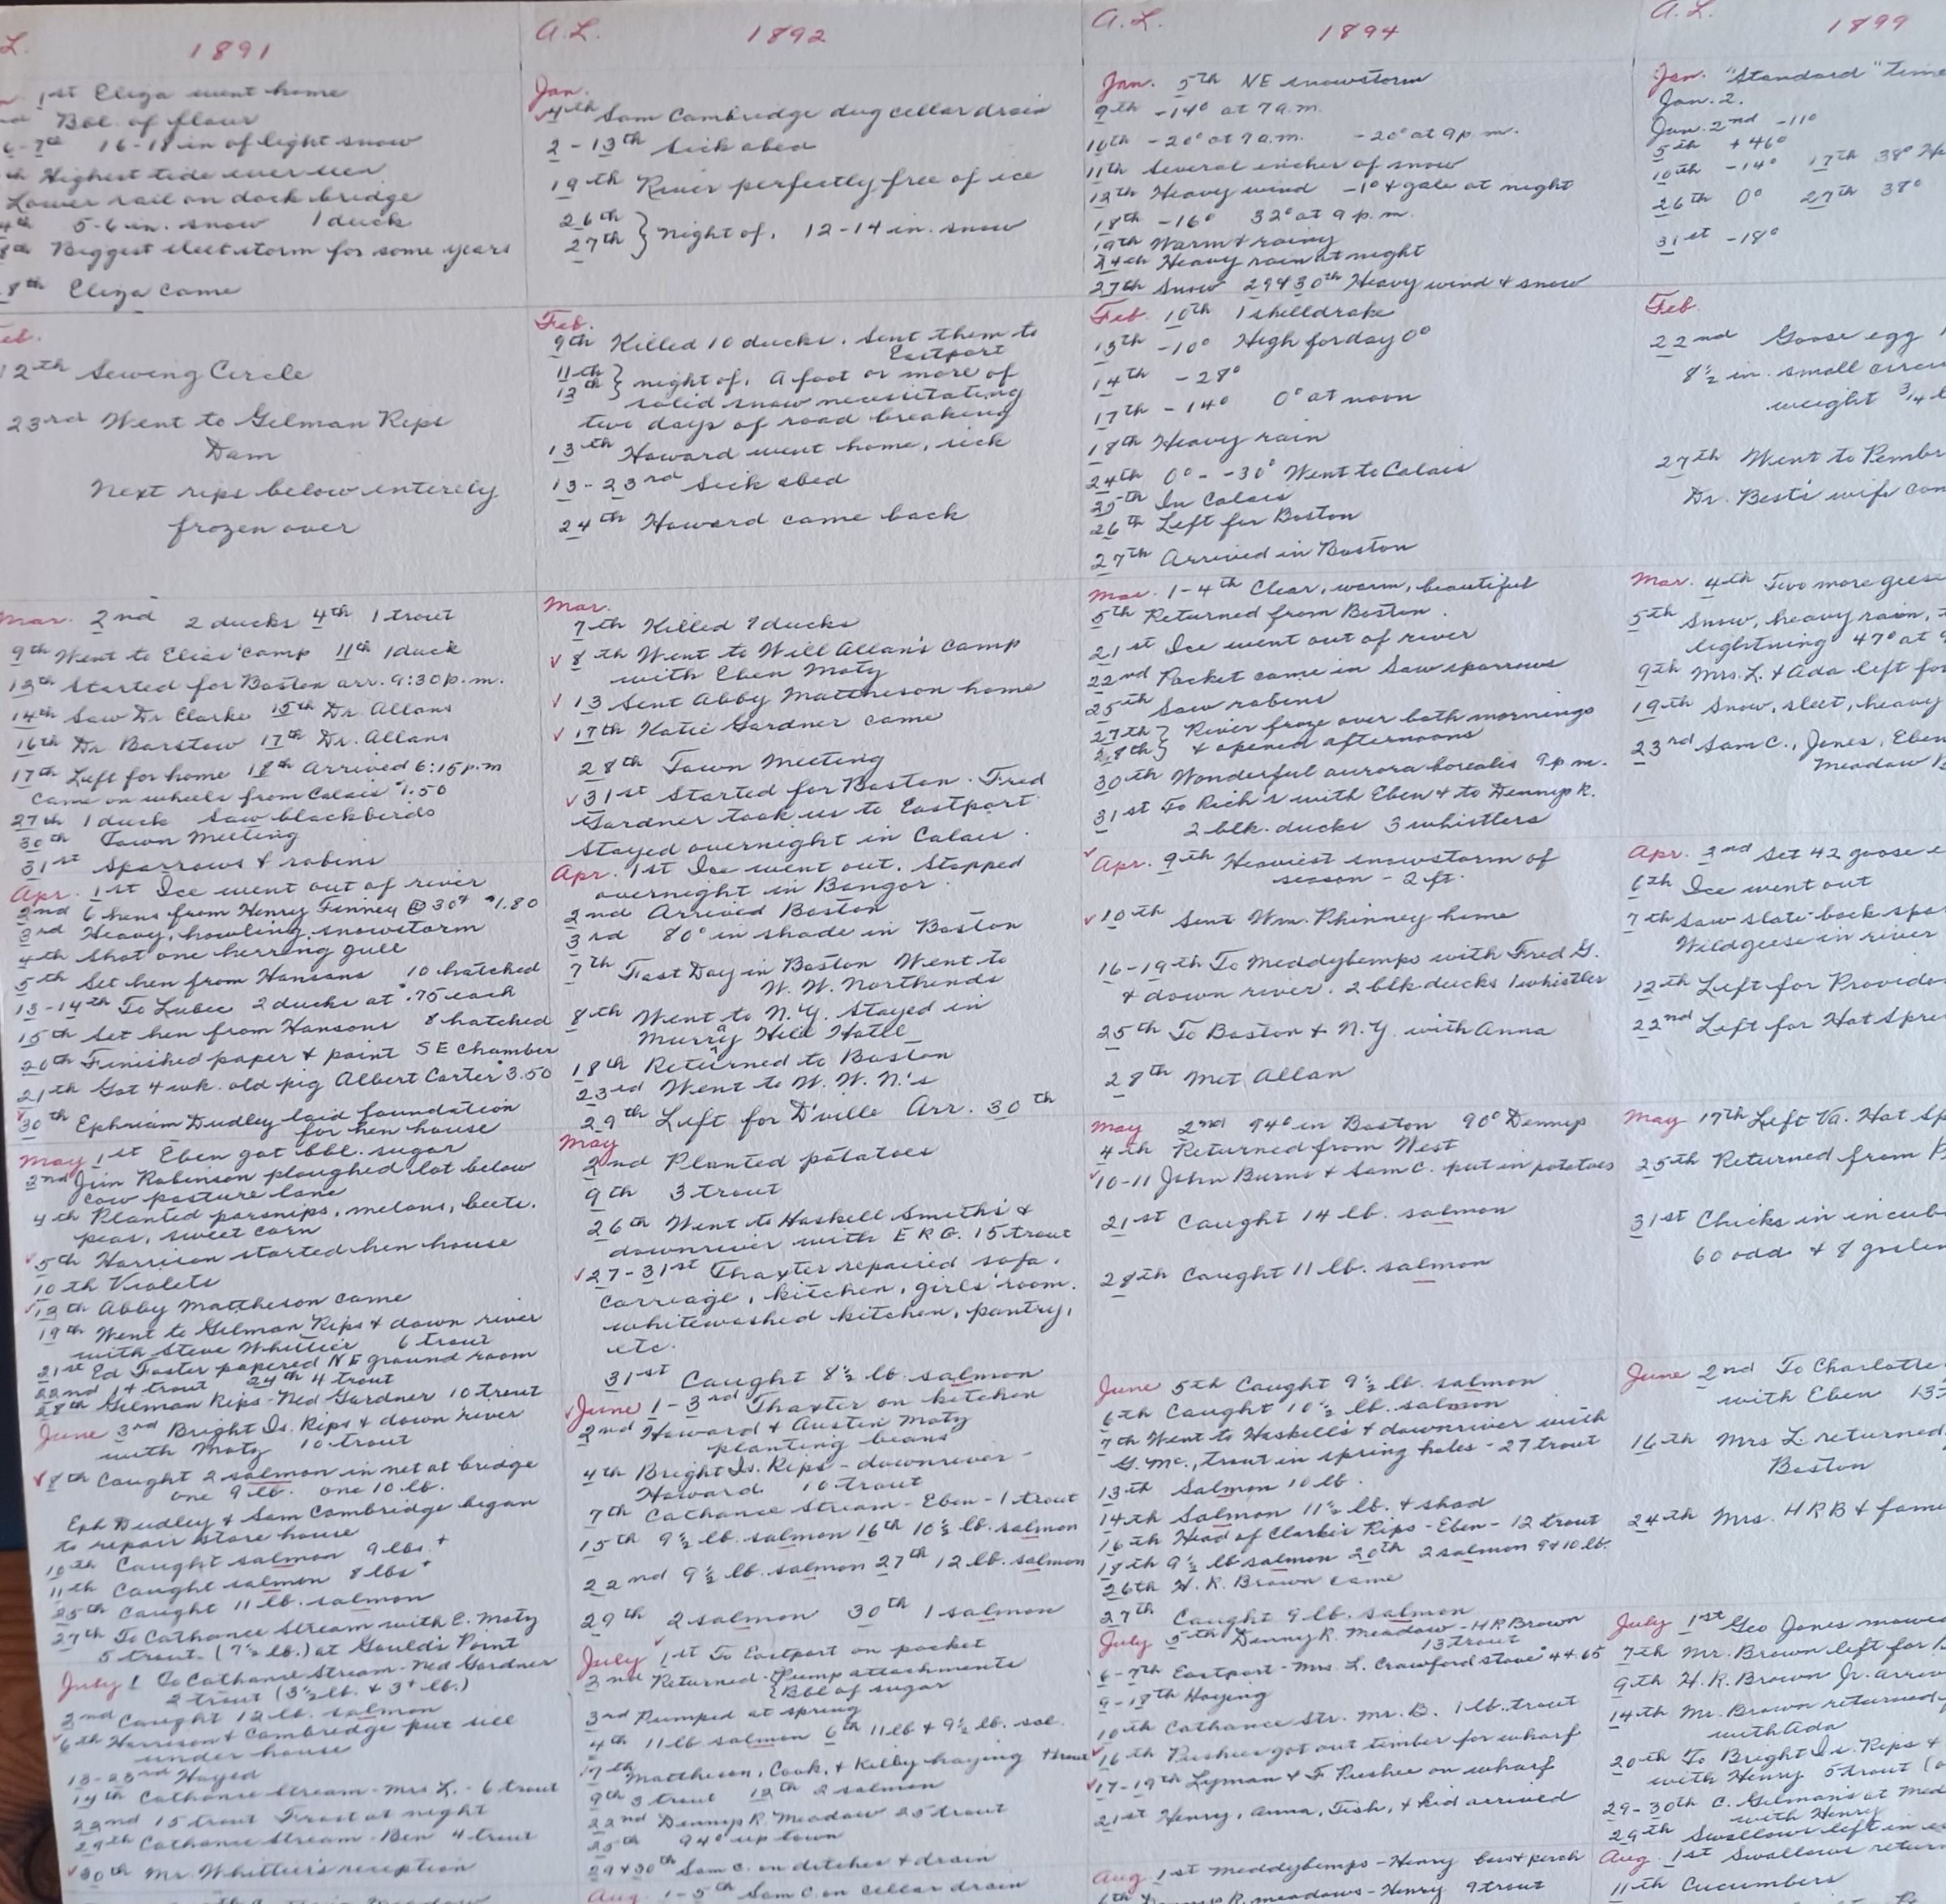 L. 1891
1st Eliza went home
Bbl. of flour
6-7th 16-18 in of light snow
Highest tide ever seen
Lower rail on dock bridge
5-6 in. snow 1 duck
Biggest sleet storm for some years
8th Eliza came
Feb.
12th Sewing Circle
23rd Went to Gilman Rips
Dam
Next rips below entirely
frozen over
Mar. 2nd 2 ducks 4th 1 trout
9th Went to Elias' camp 11th 1 duck
13th Started for Boston arr. 9:30 p.m.
14th Saw Dr. Clarke 15th Dr. Allans
16th Dr. Barstow 17th Dr. Allans
17th Left for home 18th Arrived 6:15 p.m
Came on wheels from Calais $1.50
27th 1 duck Saw blackbirds
30th Town Meeting
31st Sparrows & robins
Apr. 1st Ice went out of river
2nd 6 hens from Henry Finney @ 30¢ $1.80
3rd Heavy, howling snowstorm
4th Shot one herring gull
5th Set hen from Hansons 10 hatched
13-14th To Lubec 2 ducks at .75 each
15th Set hen from Hansons 8 hatched
20th Finished paper & paint SE Chamber
21th Got 4 wk. old pig Albert Carter $3.50
30th Ephriam Dudley laid foundation
for hen house
May 1st Eben got bbl. sugar
2nd Jim Robinson ploughed lot below
cow pasture lane
4th Planted parsnips, melons, beets,
peas, sweet corn
5th Harrison started hen house
10th Violets
Abby Mattheson came
19th Went to Gilman Rips & down river
with Steve Whittier 6 trout
21st Ed Foster papered NE ground room
22nd 14 trout 24th 4 trout
28th Gilman Rips - Ned Gardner 10 trout
June 3rd Bright Is. Rips & down river
with Moty 10 trout
8th Caught 2 salmon in net at bridge
one 9 lb. one 10 lb.
Eph Dudley & Sam Cambridge began
to repair store house
10th Caught salmon 9 lbs. +
11th Caught salmon 8 lbs +
25th Caught 11 lb. salmon
27th To Cathance Stream with E. Moty
5 trout - (7½ lb.) at Gould's Point
July 1 To Cathance Stream - Ned Gardner
2 trout (3½ lb. & 3+ lb.)
2nd Caught 12 lb. salmon
6th Harrison & Cambridge put sill
under house
13-23rd Hayed
19th Cathance Stream - Mrs L. - 6 trout
22nd 15 trout Frost at night
29th Cathance Stream - Ben 4 trout
30th Mr. Whittier's reception
A.L. 1892
Jan.
4th Sam Cambridge dug cellar drain
2-13th Sick abed
19th River perfectly free of ice
26th
27th } night of, 12-14 in. snow
Feb.
9th Killed 10 ducks. Sent them to
Eastport
11th
12th } night of. A foot or more of
solid snow necessitating
two days of road breaking
13th Howard went home, sick
13-23rd Sick abed
24th Howard came back
Mar.
7th Killed 9 ducks
8th Went to Will Allan's camp
with Eben Moty
13 Sent Abby Mattheson home
17th Katie Gardner came
28th Town Meeting
31st Started for Boston. Fred
Gardner took us to Eastport
Stayed overnight in Calais.
Apr. 1st Ice went out. Stopped
overnight in Bangor.
2nd Arrived Boston
3rd 80° in shade in Boston
7th Fast Day in Boston Went to
W. W. Northends
8th Went to N.Y. Stayed in
Murray Hill Hotel
18th Returned to Boston
23rd Went to W. W. N.'s
29th Left for D'ville Arr. 30th
May
2nd Planted potatoes
9th 3 trout
26th Went to Haskell Smith's &
downriver with E R G. 15 trout
27-31st Thaxter repaired sofa,
carriage, kitchen, girls' room.
whitewashed kitchen, pantry,
etc.
31st Caught 8½ lb. salmon
June 1-3rd Thaxter on kitchen
2nd Howard & Austin Moty
planting beans
4th Bright Is. Rips - downriver -
Howard 10 trout
7th Cathance Stream - Eben - 1 trout
15th 9½ lb. salmon 16th 10½ lb. salmon
22nd 9½ lb. salmon 27th 12 lb. salmon
29th 2 salmon 30th 1 salmon
July 1st To Eastport on packet
2nd Returned - {Pump attachments
{Bbl of sugar
3rd Pumped at spring
4th 11 lb salmon 6th 11 lb & 9½ lb. sal.
7th Mattheson, Cook, & Kilby haying
9th 3 trout 12th 2 salmon
22nd Dennys R. Meadow 25 trout
25th 94° up town
29 & 30th Sam C. on ditches & drain
Aug. 1-5th Sam C. on cellar drain
A.L. 1894
Jan. 5th NE snowstorm
9th -14° at 7 a.m.
10th -20° at 7 a.m. -20° at 9 p.m.
11th Several inches of snow
12th Heavy wind -1° & gale at night
18th -16° 32° at 9 p.m.
19th Warm & rainy
24th Heavy rain at night
27th Snow 29 & 30th Heavy wind & snow
Feb. 10th 1 shelldrake
13th -10° High for day 0°
14th -28°
17th -14° 0° at noon
18th Heavy rain
24th 0° - -30° Went to Calais
25th In Calais
26th Left for Boston
27th Arrived in Boston
Mar. 1-4th Clear, warm, beautiful
5th Returned from Boston.
21st Ice went out of river
22nd Packet came in Saw sparrows
25th Saw robins
27th
28th } River froze over both mornings
& opened afternoons
30th Wonderful aurora borealis 9 p.m.
31st To Rich's with Eben & to Dennys R.
2 blk. ducks 3 whistlers
Apr. 9th Heaviest snowstorm of
season - 2 ft.
10th Sent Wm. Phinney home
16-19th To Meddybemps with Fred G.
& down river. 2 blk ducks 1 whistler
25th To Boston & N.Y. with Anna
28th Met Allan
May 2nd 94° in Boston 90° Dennys
4th Returned from West
10-11 John Burns & Sam C. put in potatoes
21st Caught 14 lb. salmon
28th Caught 11 lb. salmon
June 5th Caught 9½ lb. salmon
6th Caught 10½ lb. salmon
7th Went to Haskell's & downriver with
G. Mc., trout in spring holes - 27 trout
13th Salmon 10 lb.
14th Salmon 11½ lb. & shad
16th Head of Clarke's Rips - Eben - 12 trout
18th 9½ lb salmon 20th 2 salmon 9 & 10 lb.
26th H. R. Brown came
27th Caught 9 lb. salmon
July 5th Dennys R. Meadow - H R Brown
13 trout
6-7th Eastport - Mrs. L. Crawford stove $44.65
9-18th Haying
10th Cathance Str. Mr. B. 1 lb. trout
16th Pushees got out timber for wharf
17-19th Lyman & F Pushee on wharf
21st Henry, Anna, Tish, & kid arrived
Aug. 1st Meddybemps - Henry bass & perch
R. meadows - Henry 9 trout
A.L. 1899
Jan. "Standard" time
Jan. 2.
Jan. 2nd -11°
5th +46°
10th -14° 17th 38°
26th 0° 27th 38°
31st -18°
Feb
22nd Goose egg
8½ in. small
weight ¾ l
27th Went to Pembr
Dr. Best's wife
Mar. 4th Two more geese
5th Snow, heavy rain,
lightning 47° at
9th Mrs. L. & Ada left for
19th Snow, sleet, heavy
23rd Sam C., Jones, Eben
Meadow
Apr. 3rd Set 42 goose
6th Ice went out
7th Saw slate-back
Wild geese in river
12th Left for Provide
22nd Left for Hot Spr
May 17th Left Va. Hot Sp
25th Returned from
31st Chicks in incub
60 odd & 8
June 2nd To Charlotte
with Eben 13
16th Mrs L. returned
Boston
24th Mrs. H R B &
July 1st Geo Jones mowe
7th Mr. Brown left for
9th H. R. Brown Jr.
14th Mr. Brown returned
with Ada
20th To Bright Is. Rips &
with Henry 5 trout
29-30th C. Gilman's at Med
with Henry
29th Swallows left
Aug. 1st Swallows return
11th Cucumbers